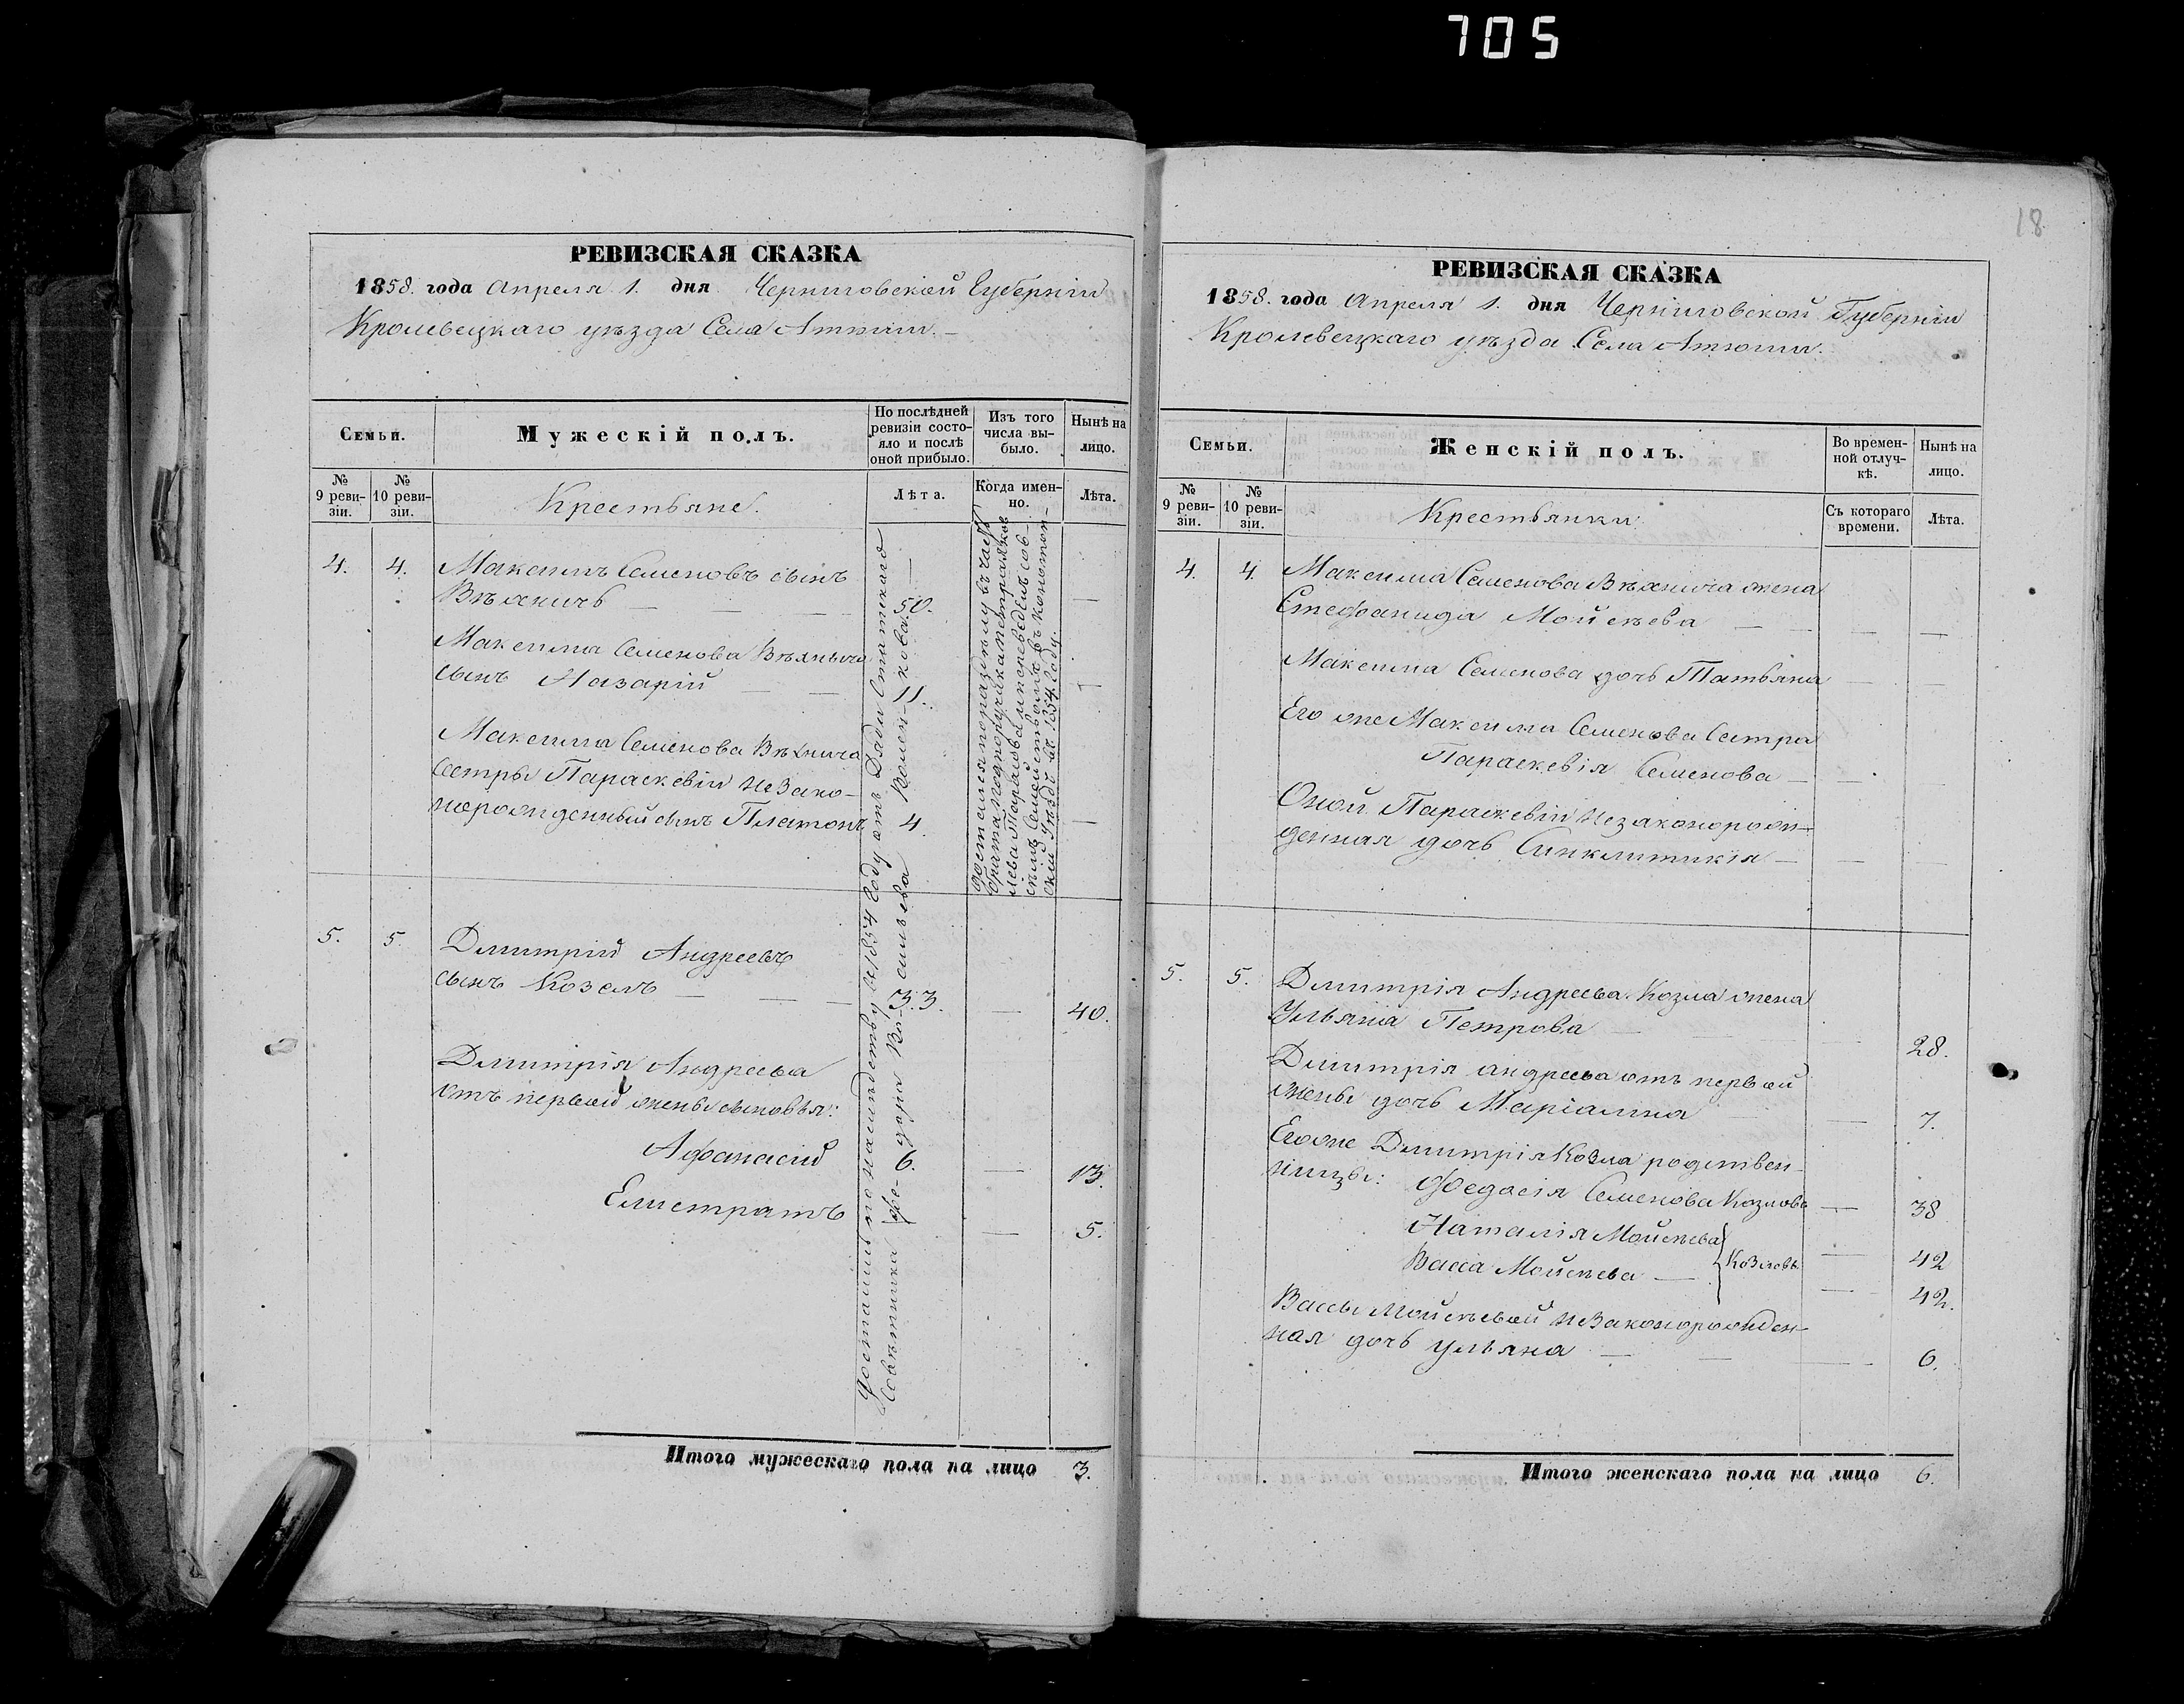 705
18
РЕВИЗСКАЯ СКАЗКА
1858. года Апреля 1. дня Черниговской Губерніи
Кролевецкаго уѣзда Села Атюши.
Семьи.
Мужескій полъ.
По послѣдней ревизіи состояло и послѣ оной прибыло.
Изъ того числа выбыло.
Нынѣ на лицо.
№ 9 ревизіи.
№ 10 ревизіи.
Крестьяне.
Лѣта.
Когда именно.
Лѣта.
4. 4. Максимъ Семеновъ сынъ
50. —
Максима Семенова
сынъ Назарій — — 11. —
Максима Семенова
сестры Параскевіи незако-
норожденный сынъ Платонъ 4. —
достался по раздѣлу въ часть
брата подпоручика
и переведенъ со в-
симъ Семействомъ въ Конотоп-
скій Уѣздъ въ 1854. году.
5. 5. Димитрій Андреевъ
сынъ Козелъ — — — 33. — 40.
Димитрія Андреева
отъ первой жены сыновья:
Афанасій 6. — 13.
Елистратъ — 5.
достались по наслѣдству въ 1854 году отъ Дяди Статскаго
Совѣтника Фе-дора Ва-сильева
Итого мужескаго пола на лицо 3.
РЕВИЗСКАЯ СКАЗКА
1858. года Апреля 1. дня Черниговской Губерніи
Кролевецкаго уѣзда Села Атюши.
Семьи.
Женскій полъ.
Во временной отлучкѣ.
Нынѣ на лицо.
№ 9 ревизіи.
№ 10 ревизіи.
Крестьянки
Съ котораго времени.
Лѣта.
4. 4. Максима Семенова жена
Стефанида Мойсѣева — —
Максима Семенова дочь Татьяна — —
Его же Максима Семенова Сестра
Параскевія Семенова — — —
Оной Параскевіи незаконорож-
денная дочь Синклитикія — — —
5. 5. Димитрія Андреева Козла жена
Ульяна Петрова — — 28.
Димитрія Андреева отъ первой
жены дочь Маріамна — 7.
Егоже Димитрія Козла родствен-
ницы: Федосія Семенова Козлова — 38
Наталія Мойсѣева — 42
Васса Мойсѣева — Козловы — 42.
Вассы Мойсѣевой незаконорожден-
ная дочь Ульяна — — — 6.
Итого женскаго пола на лицо 6.